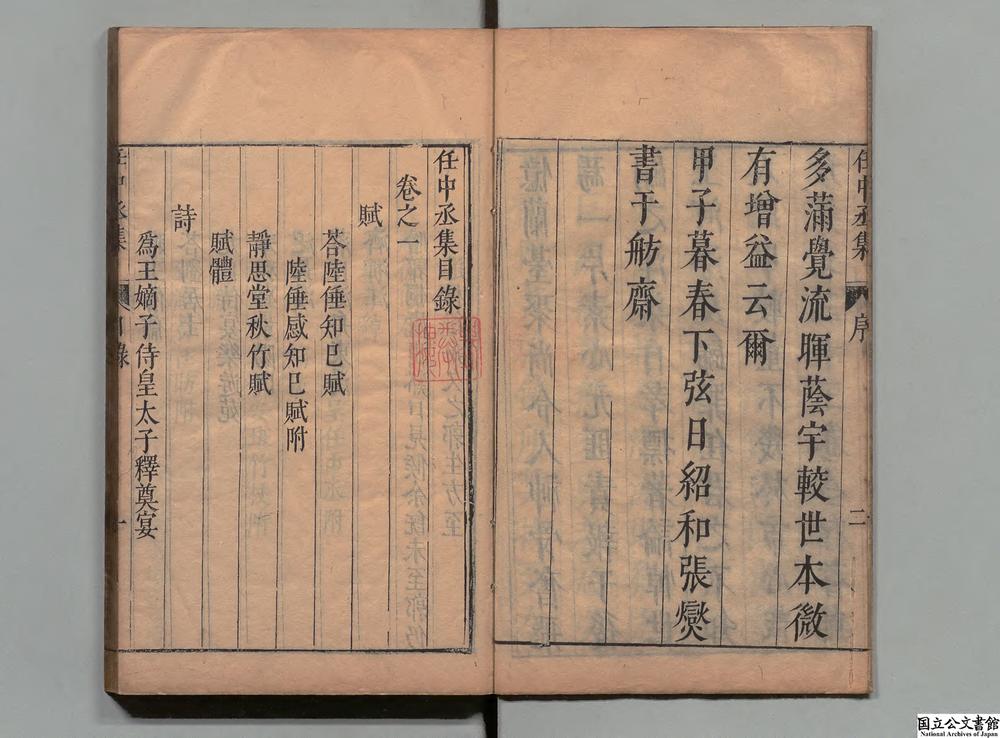 任中丞集 序 二
多滿覺流暉蔭宇較世本微
有增益云爾
甲子暮春下弦日紹和張燮
書于舫齋
任中丞集目錄
卷之一
賦
荅陸倕知己賦
陸倕感知己賦附
靜思堂秋竹賦
賦體
詩
爲王嫡子侍皇太子釋奠宴
任中丞集 目錄 一
国立公文書館
National Archives of Japan